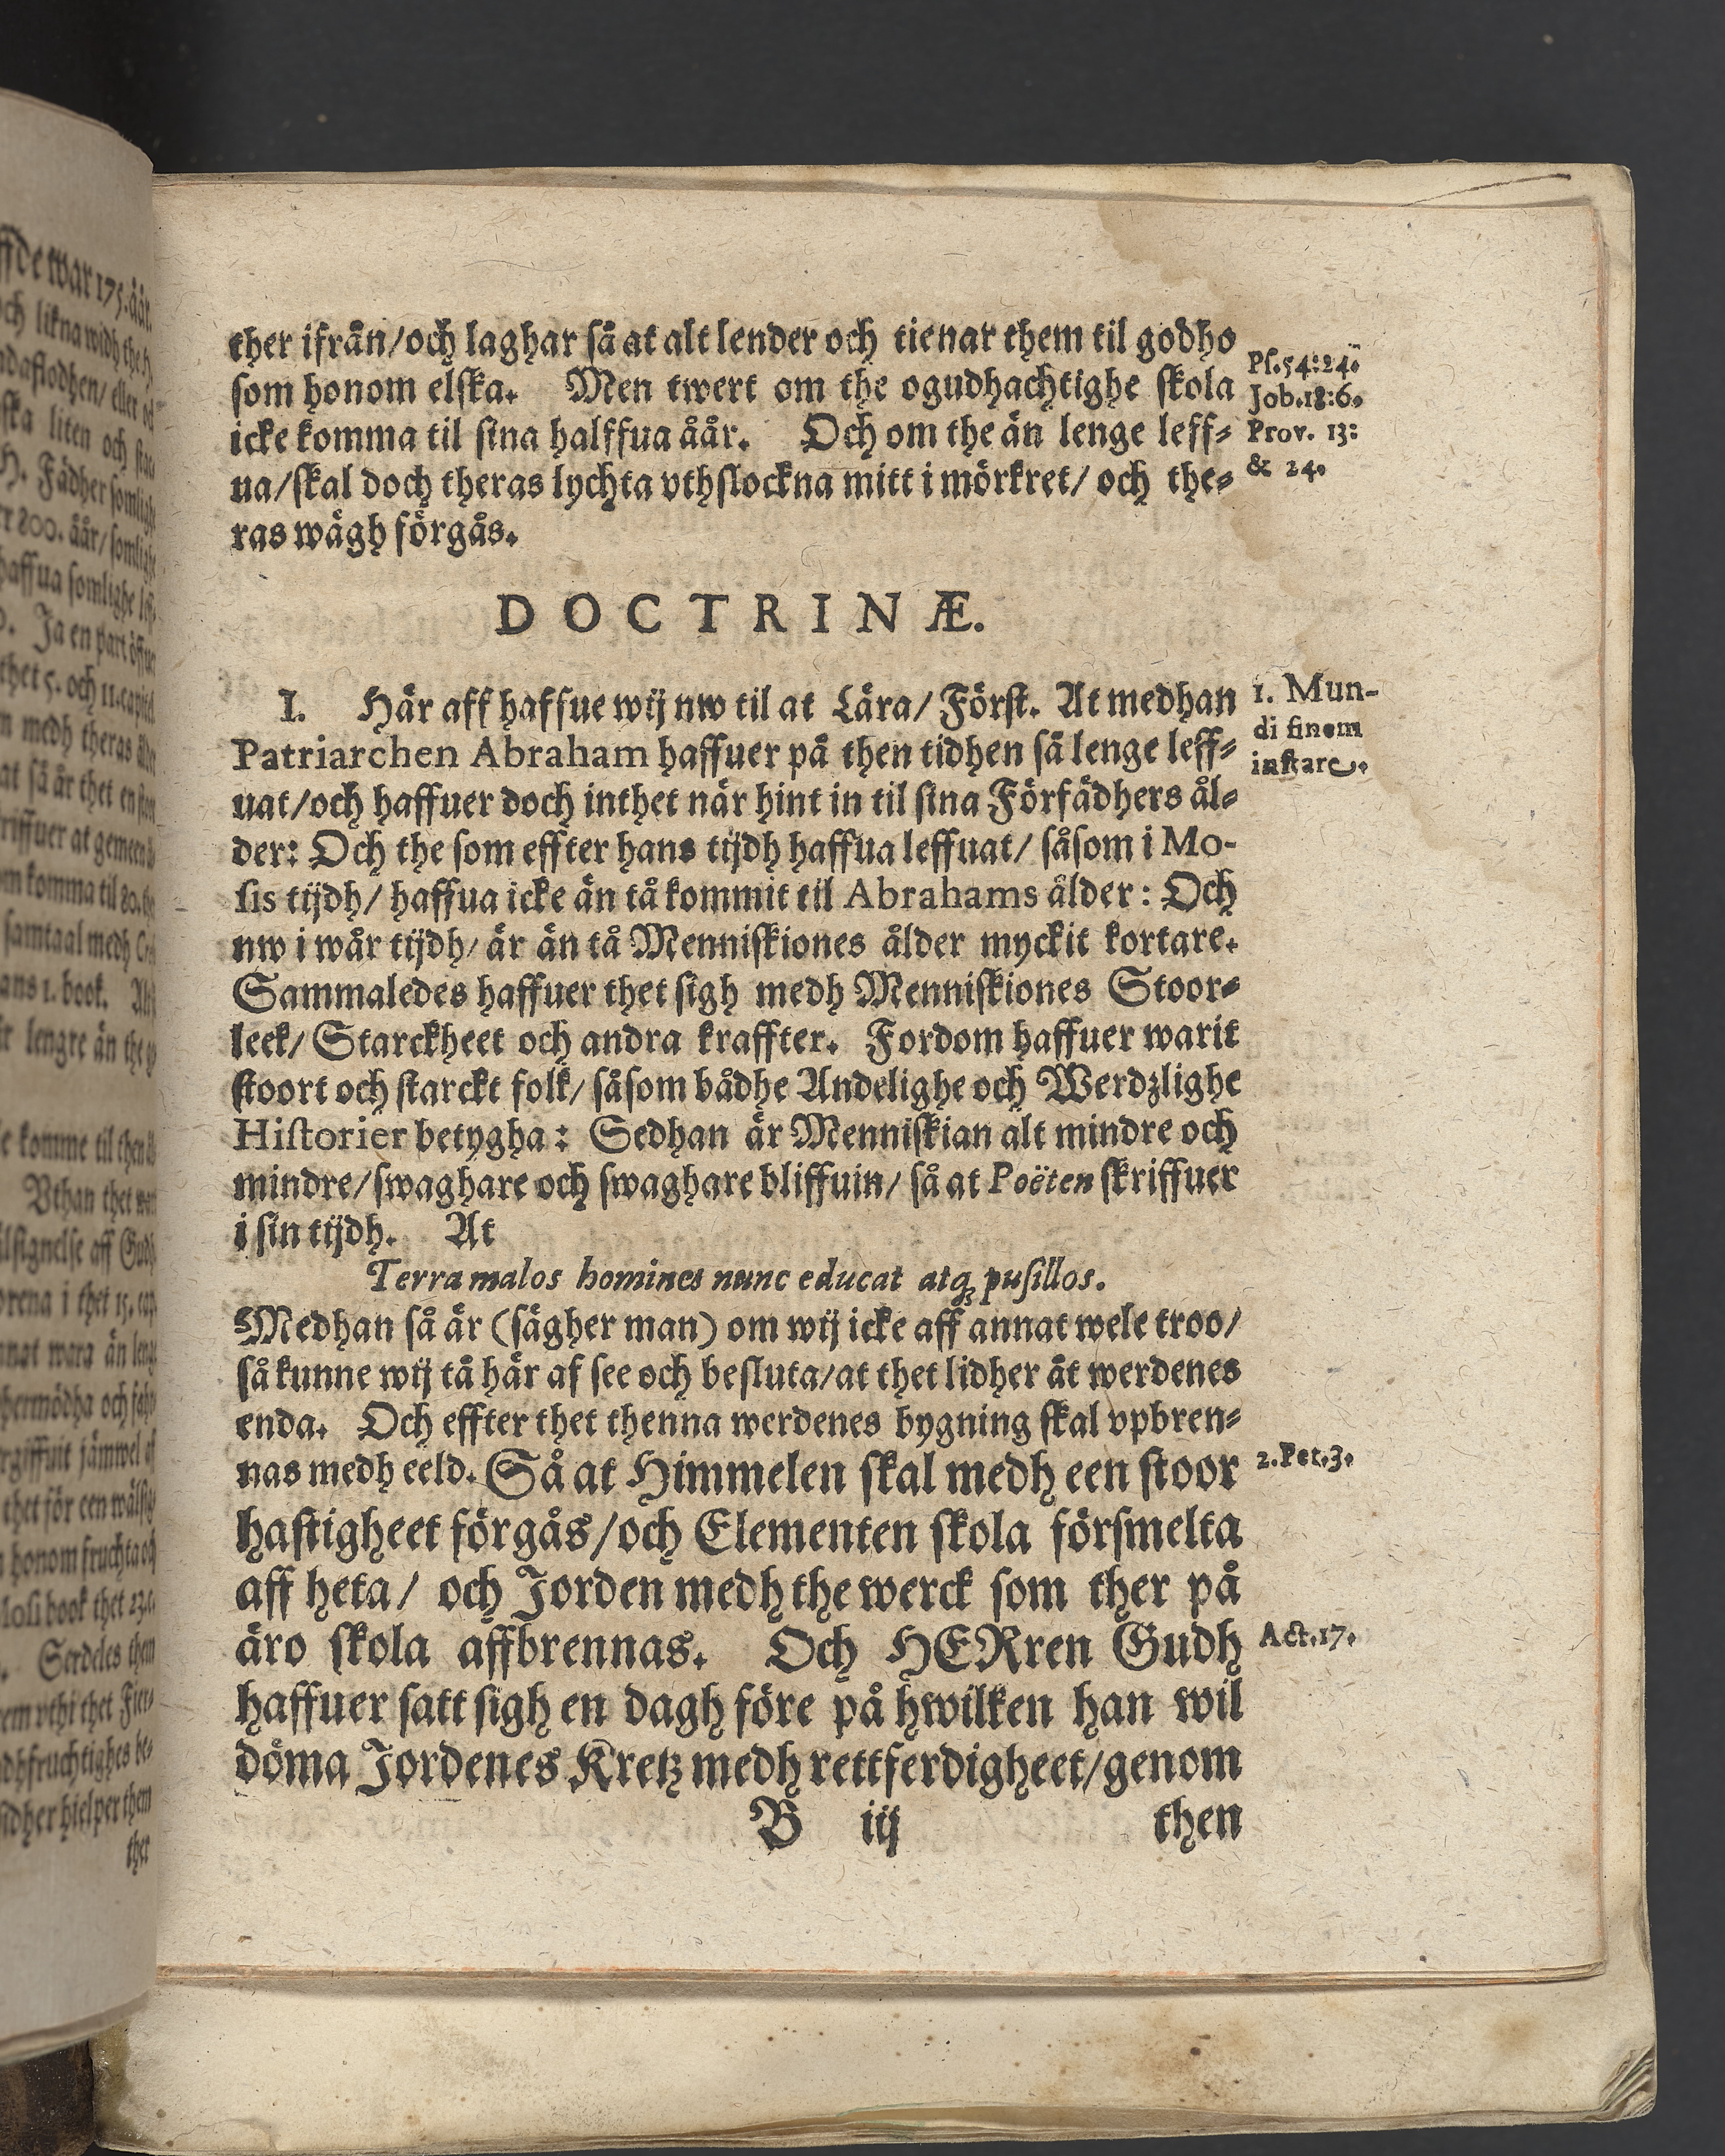 ther ifrån/och laghar så at alt lender och tienar them til godho
som honom elska. Men twert om the ogudhachtighe skola
icke komma til sina halffua åår. Och om the än lenge leff-
ua/skal doch theras lychta vthslockna mitt i mörkret/ och the-
ras wägh förgås.
Ps.54:24.
Job.18:6.
Prov. 13:
& 24.
DOCTRINÆ.
I. Här aff haffue wij nw til at Lära/ Först. At medhan
Patriarchen Abraham haffuer på then tidhen så lenge leff-
uat/och haffuer doch inthet när hint in til sina Förfädhers ål-
der: Och the som effter hans tijdh haffua leffuat/ såsom i Mo-
sis tijdh/ haffua icke än tå kommit til Abrahams ålder: Och
nw i wår tijdh/ är än tå Menniskiones ålder myckit kortare.
Sammaledes haffuer thet sigh medh Menniskiones Stoor-
leek/ Starckheet och andra kraffter. Fordom haffuer warit
stoort och starckt folk/ såsom bådhe Andelighe och Werdzlighe
Historier betygha: Sedhan är Menniskian alt mindre och
mindre/swaghare och swaghare bliffuin/ så at Poëten skriffuer
i sin tijdh. At
1. Mun-
di finem
instare.
Terra malos homines nunc educat atq; pusillos.
Medhan så är (sägher man) om wij icke aff annat wele troo/
så kunne wij tå här af see och besluta/at thet lidher åt werdenes
enda. Och effter thet thenna werdenes bygning skal vpbren-
nas medh eeld. Så at Himmelen skal medh een stoor
hastigheet förgås/och Elementen skola försmelta
aff heta/ och Jorden medh the werck som ther på
äro skola affbrennas. Och HERren Gudh
haffuer satt sigh en dagh före på hwilken han wil
döma Jordenes Kretz medh rettferdigheet/genom
2.Pet.3.
Act.17.
B iij then